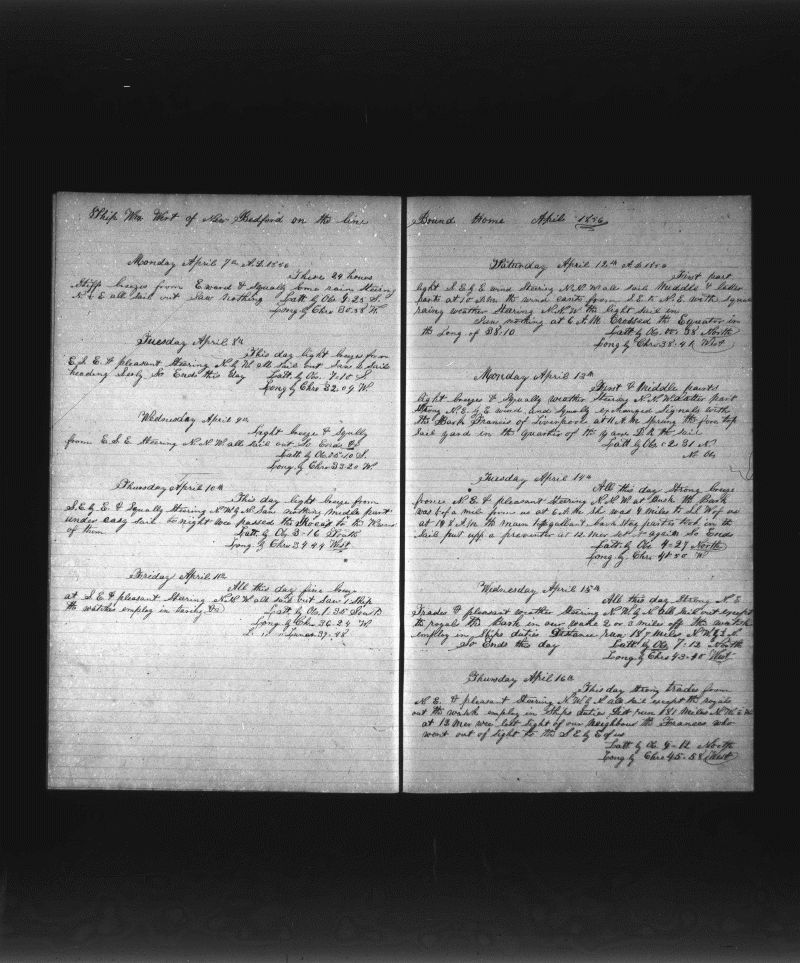 Ship Wm West of New Bedford on the line
Monday April 7th A.D. 1856
These 24 hours
Stiff breezes from E ward & Squally Some rain Stering
N & E all sail out Saw nothing Latt by Obs 9-25 S.
Long by Chro 30.58 W.
Tuesday April 8th
This day light breezes from
E.S.E. & pleasant Stearing N by W all sail out Saw a Sail
heading So Ends this day Latt by Obs. 7-10 S.
Long by Chro 32.09 W.
Wednesday April 9th
Light breeze & Sqully
from E.S.E Steering N.N.W all sail out So Ends
Latt by Obs 05-10 S.
Long by Chro 33-20 W
Thursday April 10th
This day light breeze from
S.E by E. & Squally Stearing N.W by N. Saw nothing midle part
under easy sail to night we passed the Rocas to the W ward
of them Latt by Obs 3-16 South
Long. by Chro 34.44 West
Friday April 11th
All this day fine breeze
at S.E & pleasant Staring N.N.W all sail out Saw 1 Ship
the watches employ in Latt by Obs 1-35 South
Long by Chro 36-24 W
Lunar 37-48
Bound Home April 1856
Saturday April 12th A.D. 1856
First part
light S.E by E wind Stering N.N.W all sail Middle & latter
parts at 10 A.M. the wind cants from S.E to N.E with squall
rainy weather Staring N.N.W the light sail in
Saw nothing at 6 A.M. Crossed the Equator in
the Long of 38.10 Latt by Obs. 00-38 North
Long by Chro 38-41 West
Monday April 13th
First & Middle parts
light breezes & Squally weather Steering N.N.W latter part
Strong N.E. by E wind and Squally exchanged Signals with
the Bark Francis of Liverpool at 11 A.M Spring the fore top
sail yard in the quarter of the yard
Latt by Obs 02 31 N.
No Obs
Tuesday April 14th
All this day Strong breeze
from N.E. & pleasant Stearing N.N.W at Dark the Bark
was of a mile from us at 6 A.M. She was 4 miles to of us
at 10 A.M. the main topgallant back stay parted took in the
Sail put up a preventer at 12 Mer set it again So Ends
Latt by Obs 4-27 North
Long by Chro 41-50 W
Wednesday April 15th
All this day Strong N.E
Trades & pleasant weather Stearing N.W by N all sail out except
the royals the Bark in our wake 2 or 3 miles off the watch
employ in Ships duties Distance run 187 miles N.W by N
So Ends this day Latt by Obs 7-12 North
Long by Chro 43-40 West
Thursday April 16th
This day strong trades from
N.E. & pleasant Steering N.W by N all sail except the royals
out the watch employ in Ships duties Dist run 181 miles N.W by N
at 12 Mer we lost sight of our Neighbour the Frances who
went out of sight to the S.E by E of us
Latt by Ob 9-12 North
Long by Chro 45-58 West